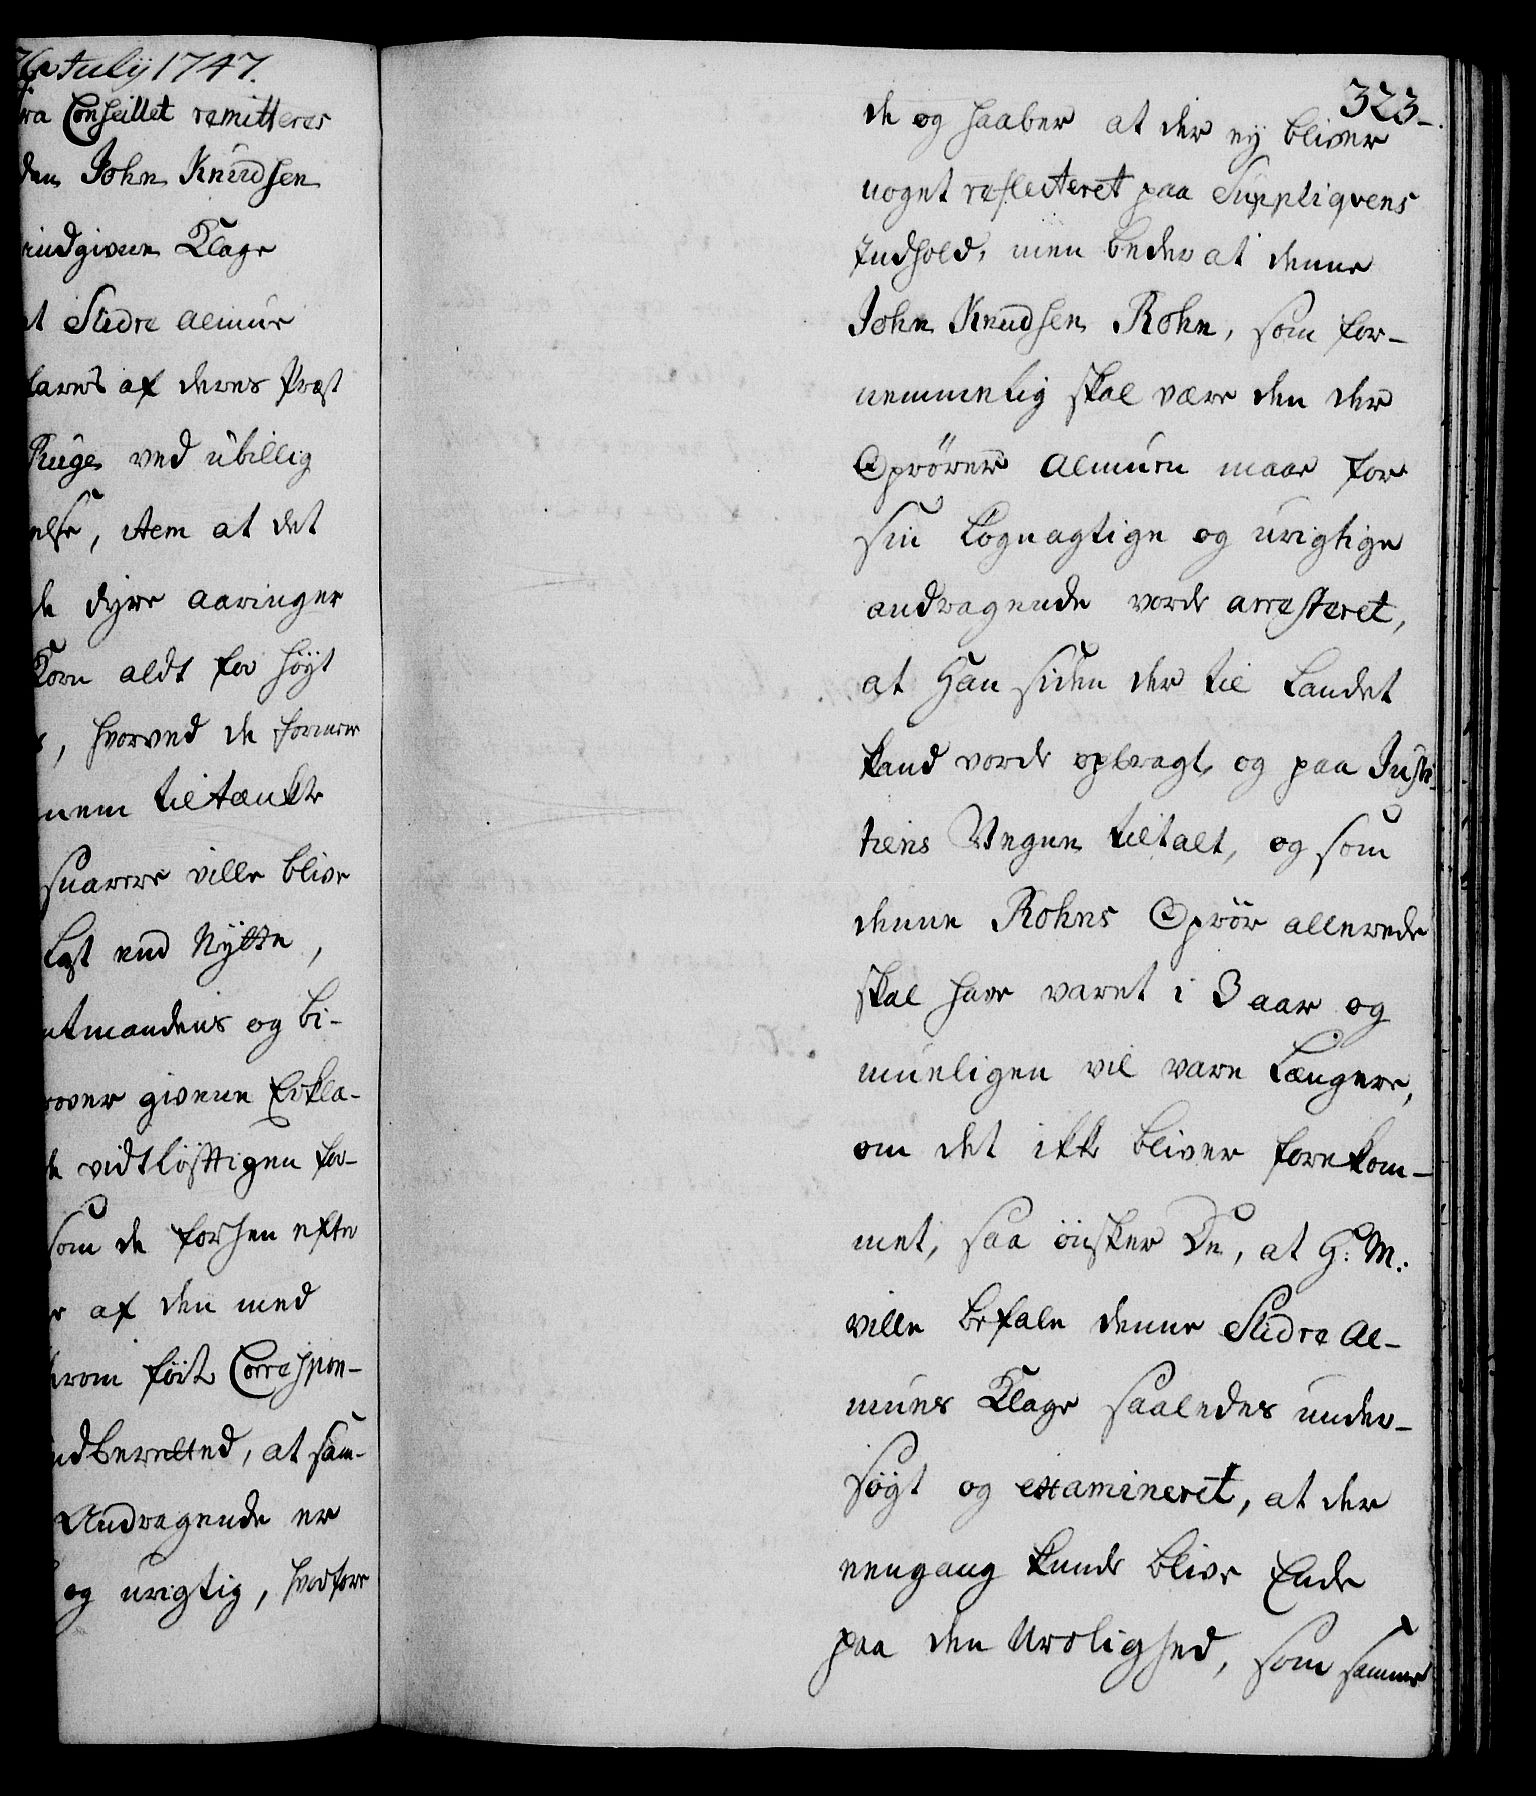 July 1747.
Conseillet remitteres
John Knudsen
indgivne Klage
Slidre Almue
af deres Præst
Ruge ved ubillig
else, item at det
de dyre Aaringer
Korn aldt for høyt
, hvorved de formeener
tiltænkte
suarere ville blive
Last end Nytte,
mandens og Bi-
over givene Erkla-
vidtløftigen for-
som de forhen efter
af den med
om føite Correspon-
indberetted, at saa-
Andragende er
og urigtig, hvorfore
323.
de og haaber at der ej bliver
noget reflecteret paa Suppliqvens
Indhold, men beder at denne
John Knudsen Rohn, som for-
nemmelig skal være den der
Oprører Almuen maae for
sin Løgnagtige og urigtige
andragende vorde arresteret,
at Han siden der til Landet
kand vorde opbragt og paa Justi-
tiens Vegne tiltalt, og som
denne Rohns Oprör allerede
skal have varet i 3 aar og
mueligen vil vare Længere,
om det ikke bliver forekom-
met, saa önsker De, at H: M:
ville befale denne Slidre Al-
mues Klage saaledes under-
søgt og examineret, at der
eengang kunde blive Ende
paa den Urolighed, som samme